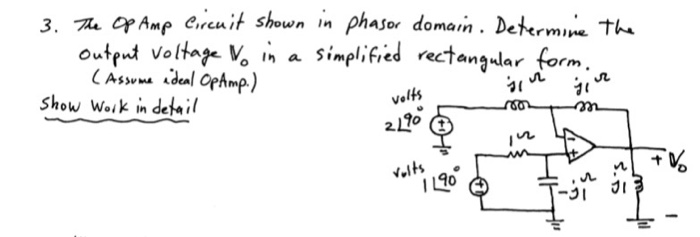 3. The OPAmp Circuit shown in phasor domain. Determine the
output voltage V₀ in a simplified rectangular form.
(Assume ideal OpAmp.)
Show Work in detail
j1 Ω
j1 Ω
volts
2∠90°
+
1 Ω
-
+
+ V₀
volts
1∠90°
+
-j1 Ω
j1 Ω
-